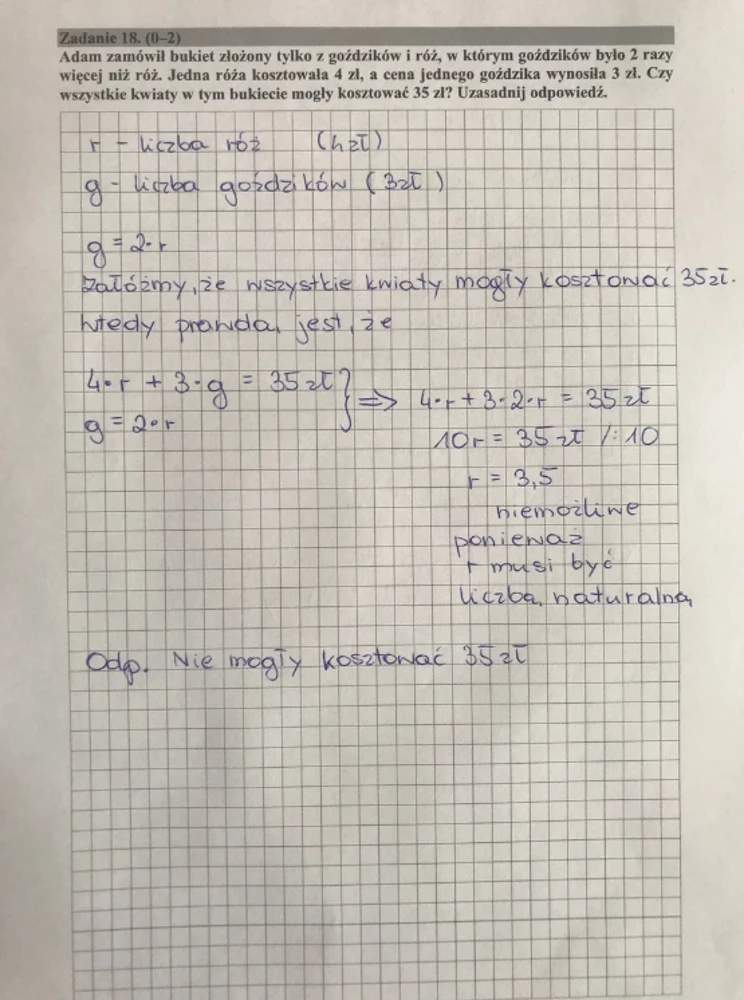 Zadanie 18. (0–2)
Adam zamówił bukiet złożony tylko z goździków i róż, w którym goździków było 2 razy
więcej niż róż. Jedna róża kosztowała 4 zł, a cena jednego goździka wynosiła 3 zł. Czy
wszystkie kwiaty w tym bukiecie mogły kosztować 35 zł? Uzasadnij odpowiedź.
r – liczba róż (4 zł)
g – liczba goździków (3 zł)
g = 2·r
Załóżmy, że wszystkie kwiaty mogły kosztować 35 zł.
Wtedy prawdą jest, że
4·r + 3·g = 35 zł } ⇒ 4·r + 3·2·r = 35 zł
g = 2·r
10r = 35 zł /:10
r = 3,5
niemożliwe
ponieważ
r musi być
liczbą naturalną
Odp. Nie mogły kosztować 35 zł